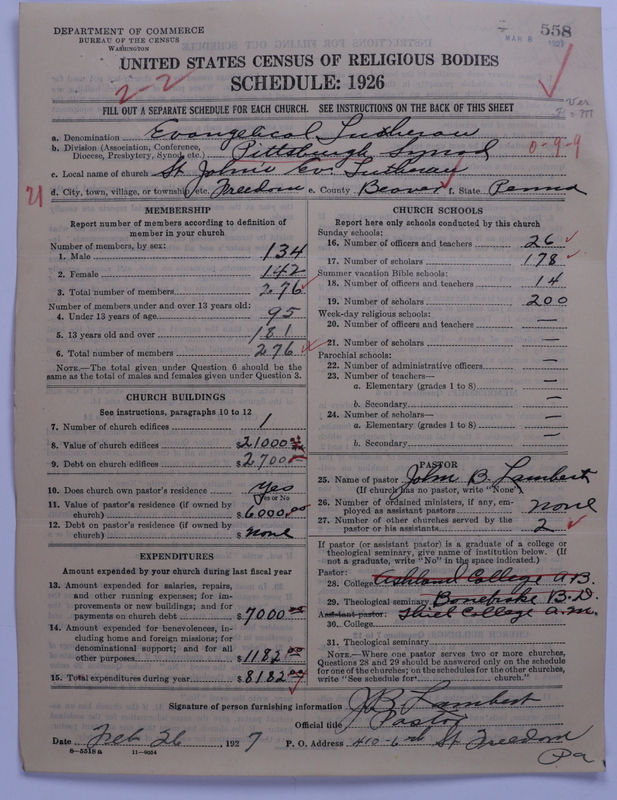 DEPARTMENT OF COMMERCE
BUREAU OF THE CENSUS
WASHINGTON
558
MAR 8 1927
UNITED STATES CENSUS OF RELIGIOUS BODIES
2-2
SCHEDULE: 1926
FILL OUT A SEPARATE SCHEDULE FOR EACH CHURCH. SEE INSTRUCTIONS ON THE BACK OF THIS SHEET
Ver
a. Denomination Evangelical Lutheran
b. Division (Association, Conference, Diocese, Presbytery, Synod, etc.) Pittsburgh Synod
0-9-9
c. Local name of church St Johns Ev. Lutheran
21 d. City, town, village, or township, etc. Freedom e. County Beaver f. State Penna
MEMBERSHIP
Report number of members according to definition of
member in your church
Number of members, by sex:
1. Male 134
2. Female 142
3. Total number of members 276
Number of members under and over 13 years old:
4. Under 13 years of age 95
5. 13 years old and over 181
6. Total number of members 276
NOTE.—The total given under Question 6 should be
same as the total of males and females given under Question 3.
CHURCH BUILDINGS
See instructions, paragraphs 10 to 12
7. Number of church edifices 1
8. Value of church edifices $21000
9. Debt on church edifices $2700
10. Does church own pastor's residence yes
Yes or No
11. Value of pastor's residence (if owned by
church) $6000.00
12. Debt on pastor's residence (if owned by
church) $ none
EXPENDITURES
Amount expended by your church during last fiscal year
13. Amount expended for salaries, repairs,
and other running expenses; for im-
provements or new buildings; and for
payments on church debt $7000 00
14. Amount expended for benevolences, in-
cluding home and foreign missions; for
denominational support; and for all
other purposes $1182 00
15. Total expenditures during year $8182 00
CHURCH SCHOOLS
Report here only schools conducted by this church
Sunday schools:
16. Number of officers and teachers 26
17. Number of scholars 178
Summer vacation Bible schools:
18. Number of officers and teachers 14
19. Number of scholars 200
Week-day religious schools:
20. Number of officers and teachers —
21. Number of scholars —
Parochial schools:
22. Number of administrative officers —
23. Number of teachers—
a. Elementary (grades 1 to 8) —
b. Secondary —
24. Number of scholars—
a. Elementary (grades 1 to 8) —
b. Secondary —
PASTOR
25. Name of pastor John B. Lambert
(If church has no pastor, write "None")
26. Number of ordained ministers, if any, em-
ployed as assistant pastors none
27. Number of other churches served by the
pastor or his assistants 2
If pastor (or assistant pastor) is a graduate of a college or
theological seminary, give name of institution below. (If
not a graduate, write "No" in the space indicated.)
Pastor:
28. College Ashland College A.B.
29. Theological seminary Bonebrake B.D.
Assistant pastor: Thiel College A.M.
30. College
31. Theological seminary
NOTE.—Where one pastor serves two or more churches,
Questions 28 and 29 should be answered only on the schedule
for one of the churches; on the schedules for the other churches,
write "See schedule for church."
Signature of person furnishing information J B Lambert
Official title Pastor
Date Feb 26, 1927 P. O. Address 410-6th St Freedom
Pa
8-5518a 11-9054